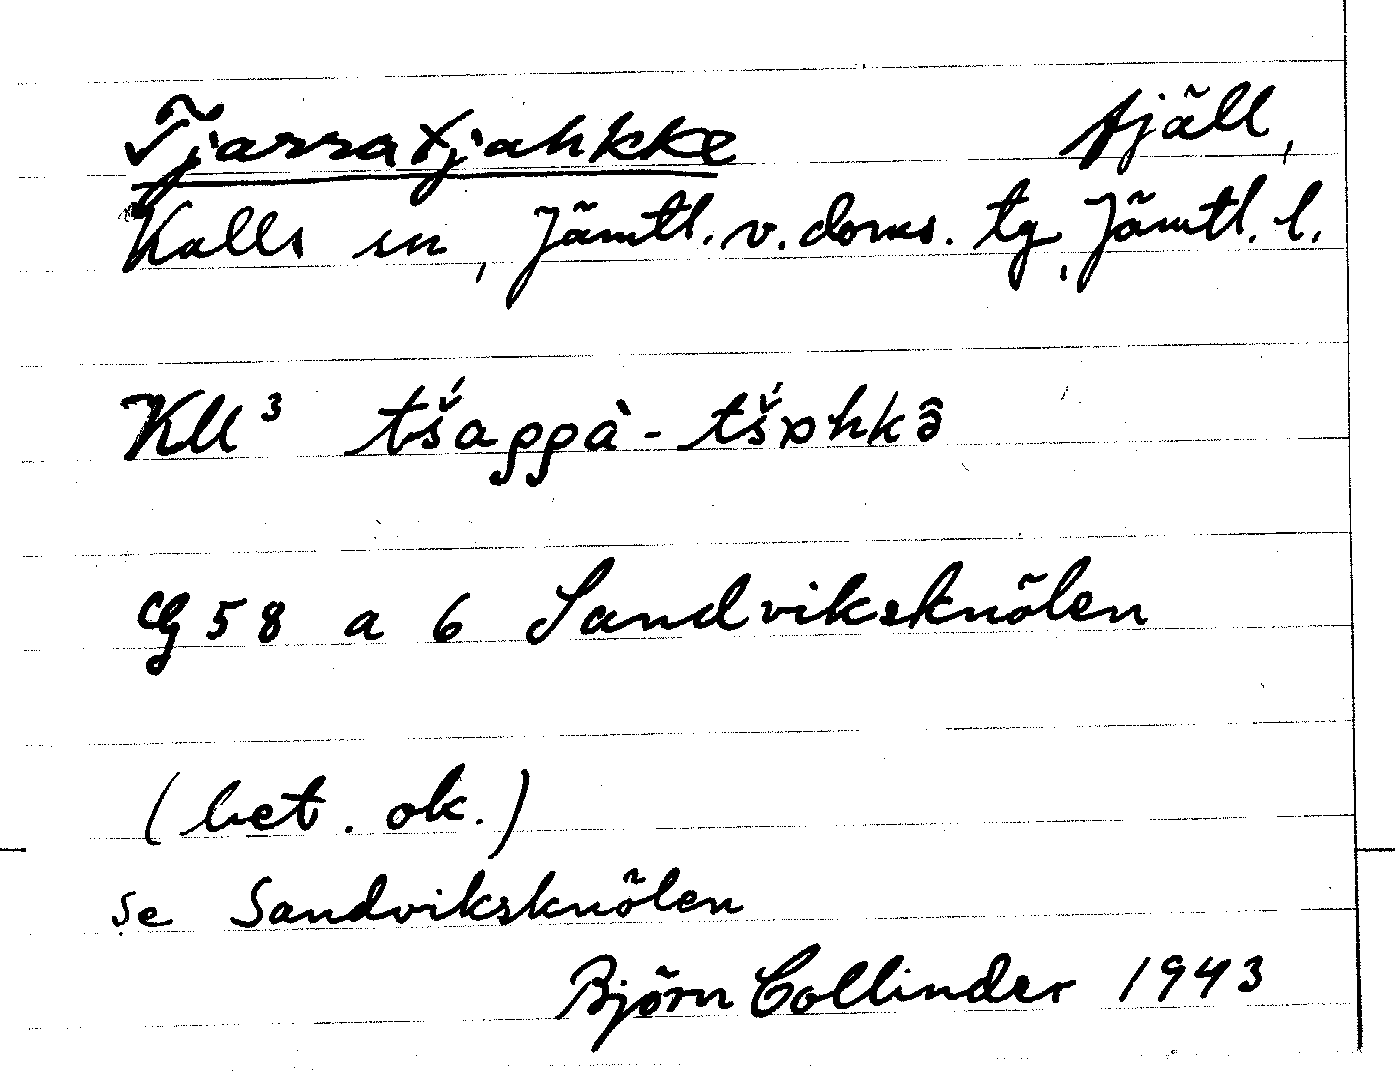 Tjarratjahkke fjäll,
Kalls sn, Jämtl. v. doms. tg, Jämtl. l.
Kll³ tš́aρρà-tš́ɒhkə̂
G 58 a 6 Sandviksknölen
(bet. ok.)
se Sandviksknölen
Björn Collinder 1943